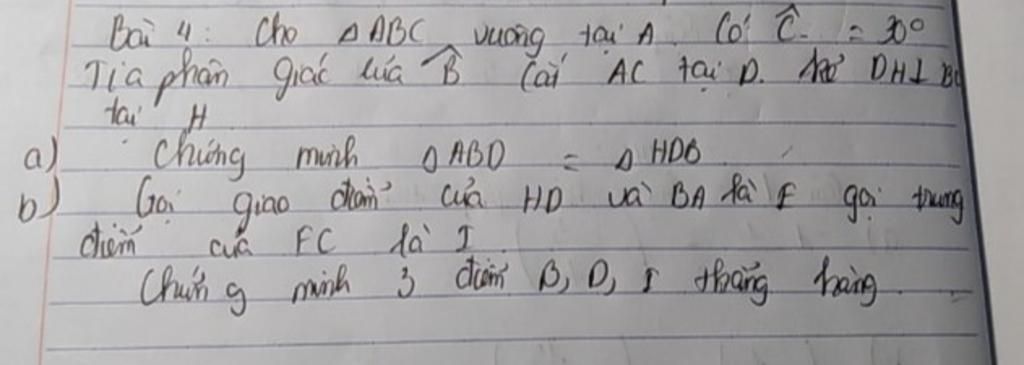 Bài 4: Cho △ABC vuông tại A. Có Ĉ = 30°
Tia phân giác của B̂ cắt AC tại D. kẻ DH⊥BC
tại H
a) Chứng minh △ABD = △HDB
b) Gọi giao điểm của HD và BA là F gọi trung
điểm của FC là I.
Chứng minh 3 điểm B, D, I thẳng hàng.